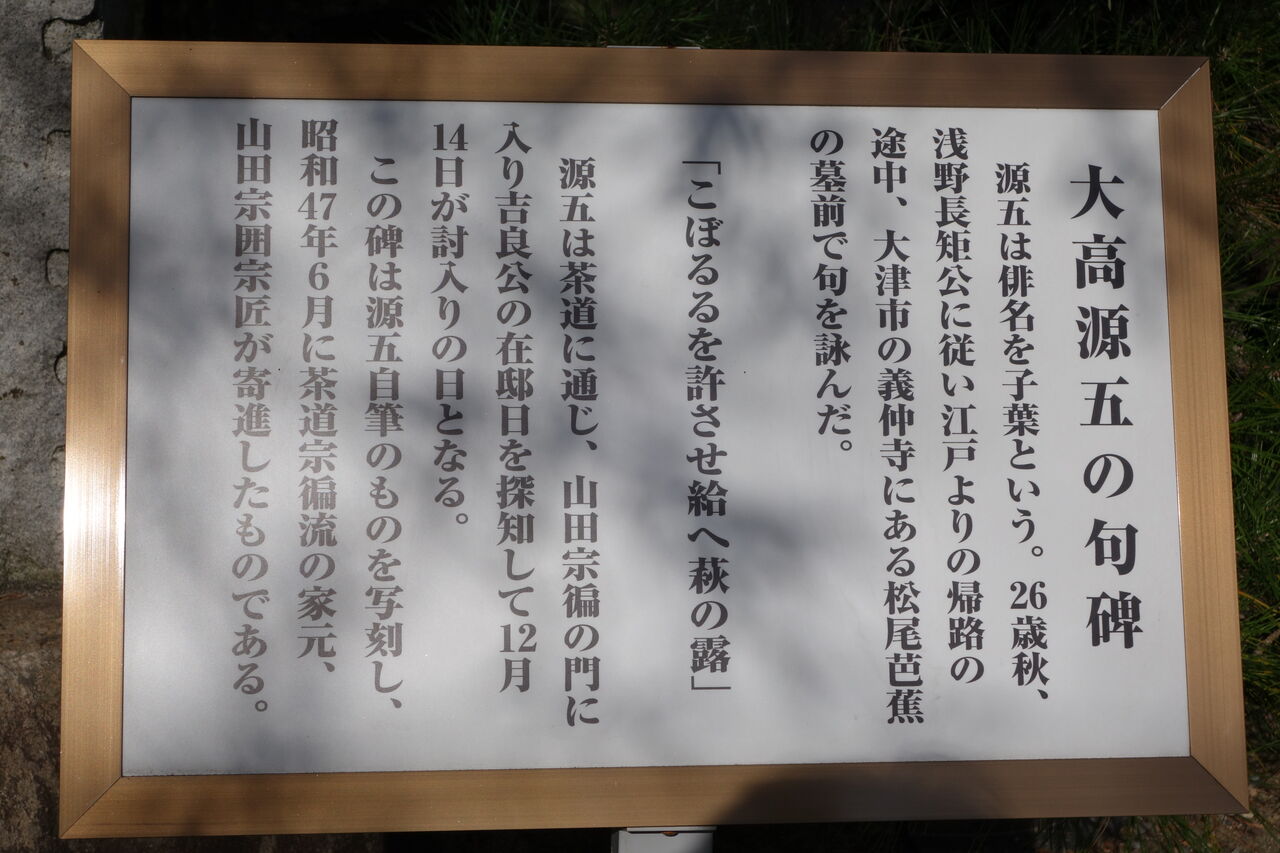 大高源五の句碑
源五は俳名を子葉という。26歳秋、
浅野長矩公に従い江戸よりの帰路の
途中、大津市の義仲寺にある松尾芭蕉
の墓前で句を詠んだ。
「こぼるるを許させ給へ萩の露」
源五は茶道に通じ、山田宗徧の門に
入り吉良公の在邸日を探知して12月
14日が討入りの日となる。
この碑は源五自筆のものを写刻し、
昭和47年6月に茶道宗徧流の家元、
山田宗囲宗匠が寄進したものである。